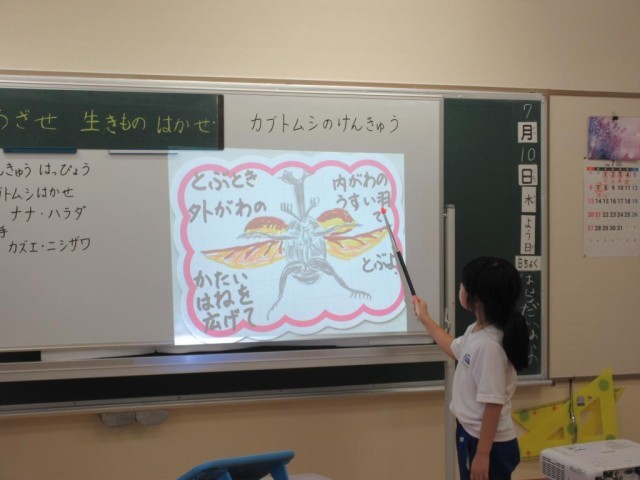 うざせ 生きもの はかせ
カブトムシのけんきゅう
んきゅう はっぴょう
ブトムシはかせ
ナナ・ハラダ
手
カズエ・ニシザワ
とぶとき
外がわの
かたい
はねを
広げて
内がわの
うすい羽
で
とぶよ。
7
月
10
日
木
よう日
日ちょく